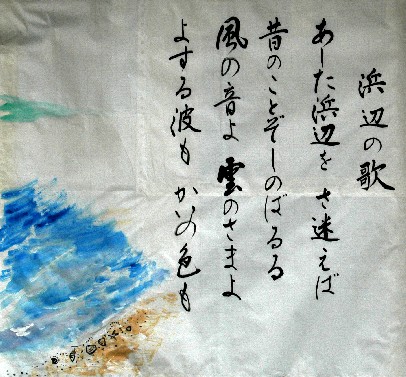 浜辺の歌
あした浜辺を さ迷えば
昔のことぞしのばるる
風の音よ 雲のさまよ
よする波も かいの色も